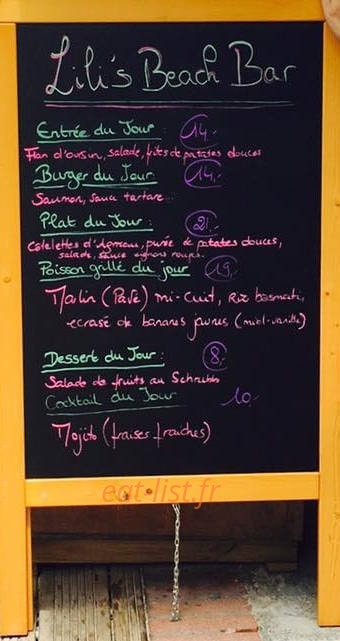 Lili's Beach Bar
Entrée du Jour : 14.-
Flan d'oursin, salade, frites de patates douces
Burger du Jour 14.-
Saumon, sauce tartare...
Plat du Jour : 21.-
Cotelettes d'Agneau, purée de patates douces,
salade, sauce oignons rouges.
Poisson grillé du jour 19.-
Marlin (Pavé) mi-cuit, Riz basmati,
ecrasé de bananes jaunes (miel-vanille)
Dessert du Jour : 8.-
Salade de fruits au Schrubb
Cocktail du Jour 10.-
Mojito (fraises fraiches)
eat-list.fr